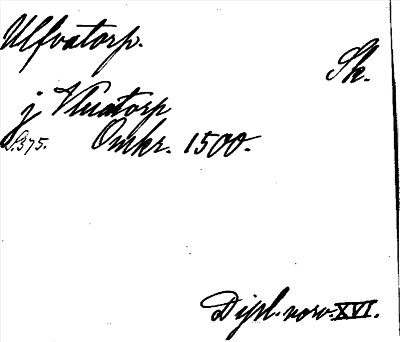 Ulfvatorp.
Sk.
j Vluatorp
S. 375. Omkr. 1500.
Dipl. norv. XVI.